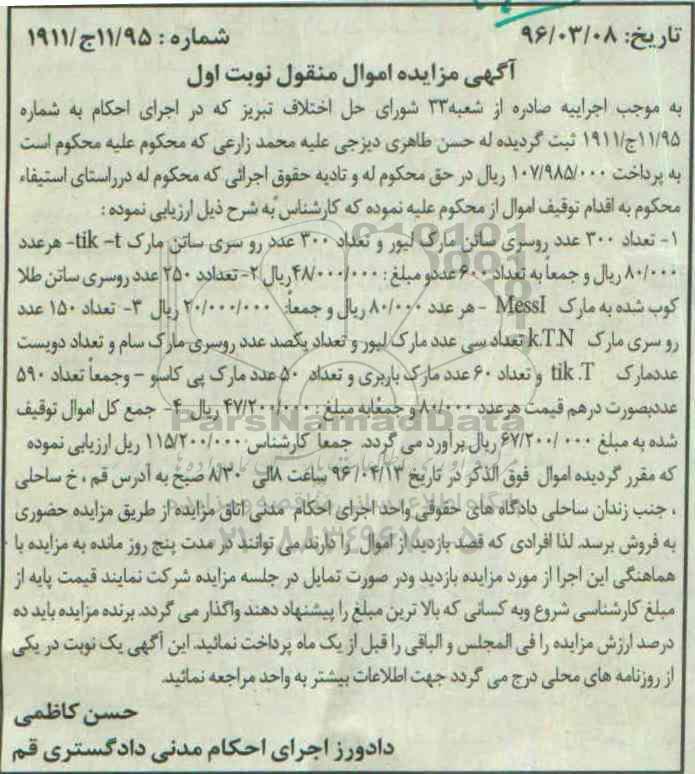 تاریخ: ۹۶/۰۳/۰۸ شماره: ۱۱/۹۵ج/۱۹۱۱
آگهی مزایده اموال منقول نوبت اول
به موجب اجراییه صادره از شعبه۳۳ شورای حل اختلاف تبریز که در اجرای احکام به شماره
۱۱/۹۵ج/۱۹۱۱ ثبت گردیده له حسن طاهری دیزجی علیه محمد زارعی که محکوم علیه محکوم است
به پرداخت ۱۰۷/۹۸۵/۰۰۰ ریال در حق محکوم له و تادیه حقوق اجرائی که محکوم له درراستای استیفاء
محکوم به اقدام توقیف اموال از محکوم علیه نموده که کارشناس به شرح ذیل ارزیابی نموده :
۱- تعداد ۳۰۰ عدد روسری ساتن مارک لیور و تعداد ۳۰۰ عدد رو سری ساتن مارک tik –t- هرعدد
۸۰/۰۰۰ ریال و جمعاً به تعداد ۶۰۰ عددو مبلغ : ۴۸/۰۰۰/۰۰۰ریال ۲- تعدادد ۲۵۰ عدد روسری ساتن طلا
کوب شده به مارک MessI - هر عدد ۸۰/۰۰۰ ریال و جمعاً: ۲۰/۰۰۰/۰۰۰ ریال ۳- تعداد ۱۵۰ عدد
رو سری مارک k.T.N تعداد سی عدد مارک لیور و تعداد یکصد عدد روسری مارک سام و تعداد دویست
عددمارک tik .T و تعداد ۶۰ عدد مارک باربری و تعداد ۵۰ عدد مارک پی کاسو – وجمعاً تعداد ۵۹۰
عددبصورت درهم قیمت هرعدد ۸۰/۰۰۰ و جمعًابه مبلغ : ۴۷/۲۰۰/۰۰۰ ریال ۴- جمع کل اموال توقیف
شده به مبلغ ۶۷/۲۰۰/۰۰۰ ریال برآورد می گردد. جمعا کارشناس ۱۱۵/۲۰۰/۰۰۰ ریل ارزیابی نموده
که مقرر گردیده اموال فوق الذکر در تاریخ ۹۶/۰۴/۱۳ ساعت ۸الی ۸/۳۰ صبح به آدرس قم ، خ ساحلی
، جنب زندان ساحلی دادگاه های حقوقی واحد اجرای احکام مدنی اتاق مزایده از طریق مزایده حضوری
به فروش برسد. لذا افرادی که قصد بازدید از اموال را دارند می توانند در مدت پنج روز مانده به مزایده با
هماهنگی این اجرا از مورد مزایده بازدید ودر صورت تمایل در جلسه مزایده شرکت نمایند قیمت پایه از
مبلغ کارشناسی شروع وبه کسانی که بالا ترین مبلغ را پیشنهاد دهند واگذار می گردد. برنده مزایده باید ده
درصد ارزش مزایده را فی المجلس و الباقی را قبل از یک ماه پرداخت نمائید. این آگهی یک نوبت در یکی
از روزنامه های محلی درج می گردد جهت اطلاعات بیشتر به واحد مراجعه نمائید.
حسن کاظمی
دادورز اجرای احکام مدنی دادگستری قم
ParsNamadData